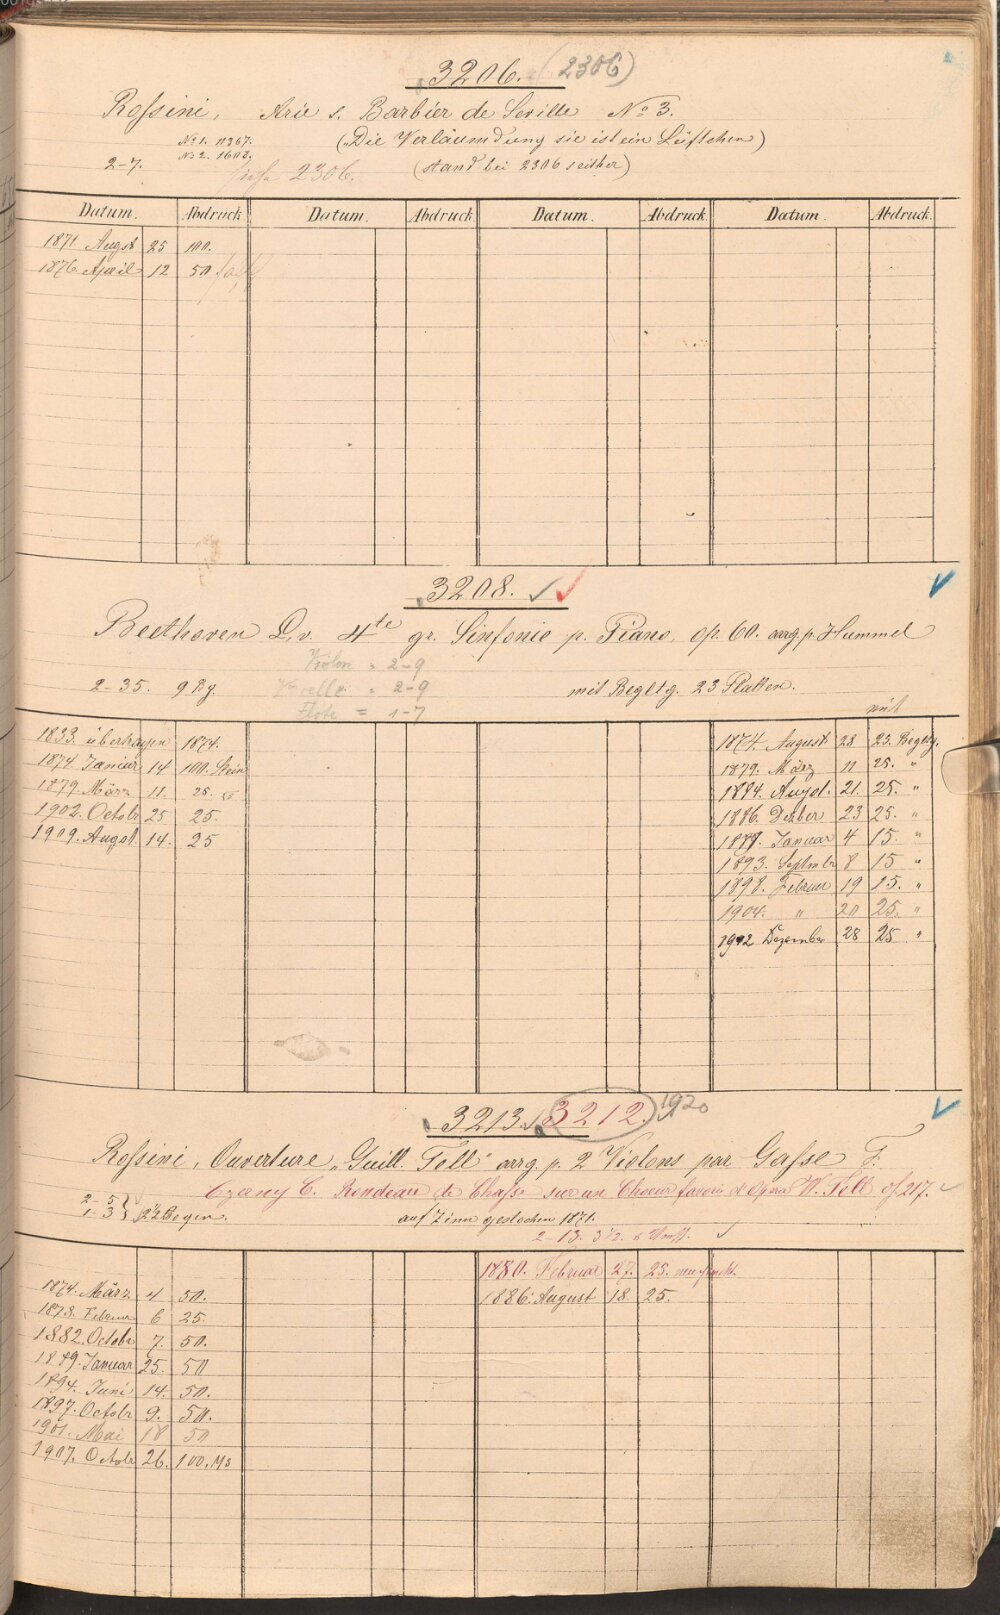 3206. (2306)
Rossini, Arie s. Barbier de Seville No 3.
No 1. 11367. („Die Verläumdung sie ist ein Lüftchen)
No 2. 1608.
2-7. siehe 2306. (stand bei 2306 seither)
Datum. Abdruck Datum. Abdruck Datum. Abdruck Datum. Abdruck.
1871. Augst 25 100.
1876 April 12 50
3208.
Beethoven L. v. 4te gr. Sinfonie p. Piano, op. 60. arrg. p. Hummel
Violon = 2-9
2-35. 9 Bg. = 2-9 mit Begltg. 23 Platten.
Flöte = 1-7
mit
1833. übertragen 1874. 1874. August 28 25. Begltg.
1874 Januar 14 100. Stein 1879. März 11 25. "
1879. März 11. 25. 1884. Augst. 21. 25. "
1902. Octobr 25 25. 1886. Dezber 23 25. "
1909. Augst 14. 25 Januar 4 15. "
1893. Septmbr 8 15 "
1898. Februar 19 15. "
1904. " 20 25. "
1912 Dezember 28 25 "
3213. 3212. 1920
Rossini, Ouverture „Guill. Tell" arrg. p. 2 Violons par Gasse F.
Czerny C. Rondeau de Chasse sur un Choeur favori d'Opéra W. Tell op. 217.
2-5
1-3 } 2½ Bogen. auf Zinn gestochen 1871.
2-13. 3½.
1880. Februar 27. 25.
1874. März 4 50. 1886. August 18 25.
1878. Februar 6 25.
1882. Octobr 7. 50.
1889. Januar 25. 50
1894. Juni 14. 50.
1897. Octobr 9. 50.
1901. Mai 18 50
1907. Octobr 26. 100.